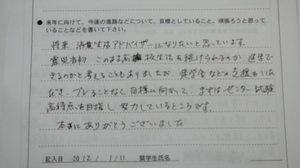 ●来年に向けて、今後の進路などについて、目標としていること、頑張ろうと思っていることなどを書いて下さい。
将来、消費生活アドバイザーになりたいと思っています。
震災当初、このまま高校生活を続けられるのか、進学で
きるのかと考えることもありましたが、奨学金などの支援もいた
だき、ブレることなく目標に向かって、まずはセンター試験
高得点を目指し努力しているところです。
本当にありがとうございました
記入日 2012/1/11 奨学生氏名